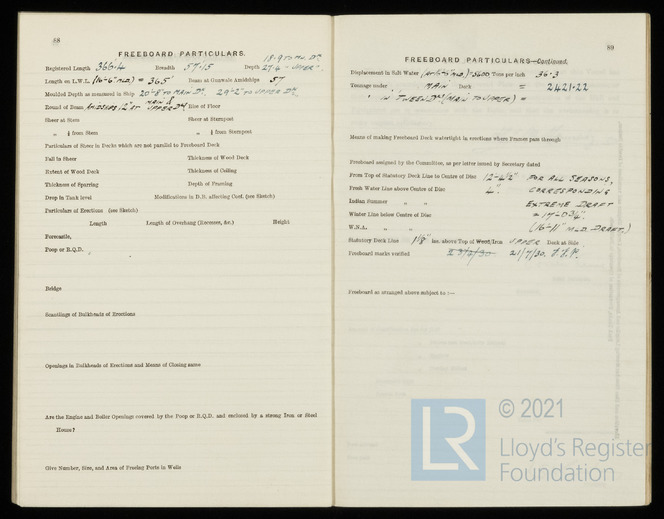 88
FREEBOARD PARTICULARS.
18·9 TO MN. DK.
Registered Length 366·4 Breadth 57·15 Depth 27·4 - UPPER -
Length on L.W.L. (16'-6" MLD.) = 365' Beam at Gunwale Amidships 57
Moulded Depth as measured in Ship 20'-8" TO MAIN DK. 29'-2" TO UPPER DK.
Round of Beam AMIDSHIPS 12" AT MAIN & UPPER DKS Rise of Floor
Sheer at Stem Sheer at Sternpost
„ ⅛ from Stem „ ⅛ from Sternpost
Particulars of Sheer in Decks which are not parallel to Freeboard Deck
Fall in Sheer Thickness of Wood Deck
Extent of Wood Deck Thickness of Ceiling
Thickness of Sparring Depth of Framing
Drop in Tank level Modifications in D.B. affecting Coef. (see Sketch)
Particulars of Erections (see Sketch)
Length Length of Overhang (Recesses, &c.) Height
Forecastle,
Poop or R.Q.D.
Bridge
Scantlings of Bulkheads of Erections
Openings in Bulkheads of Erections and Means of Closing same
Are the Engine and Boiler Openings covered by the Poop or R.Q.D. and enclosed by a strong Iron or Steel
House?
Give Number, Size, and Area of Freeing Ports in Wells
89
FREEBOARD PARTICULARS—Continued.
Displacement in Salt Water (AT 16'-6" MLD.) = 8600 Tons per inch 36·3
Tonnage under MAIN Deck = 2421·22
" IN TWEEN DKS (MAIN TO UPPER) =
Means of making Freeboard Deck watertight in erections where Frames pass through
Freeboard assigned by the Committee, as per letter issued by Secretary dated
From Top of Statutory Deck Line to Centre of Disc 12'-4½" FOR ALL SEASONS,
Fresh Water Line above Centre of Disc 4". CORRESPONDING
Indian Summer „ „ EXTREME DRAFT
Winter Line below Centre of Disc = 17'-0¾"
W.N.A. „ „ (16'-11" MLD. DRAFT.)
Statutory Deck Line 1⅛" ins. above Top of Wood/Iron UPPER Deck at Side
Freeboard marks verified 21/7/30.
Freeboard as arranged above subject to :—
© 2021
Lloyd's Register
Foundation
LR